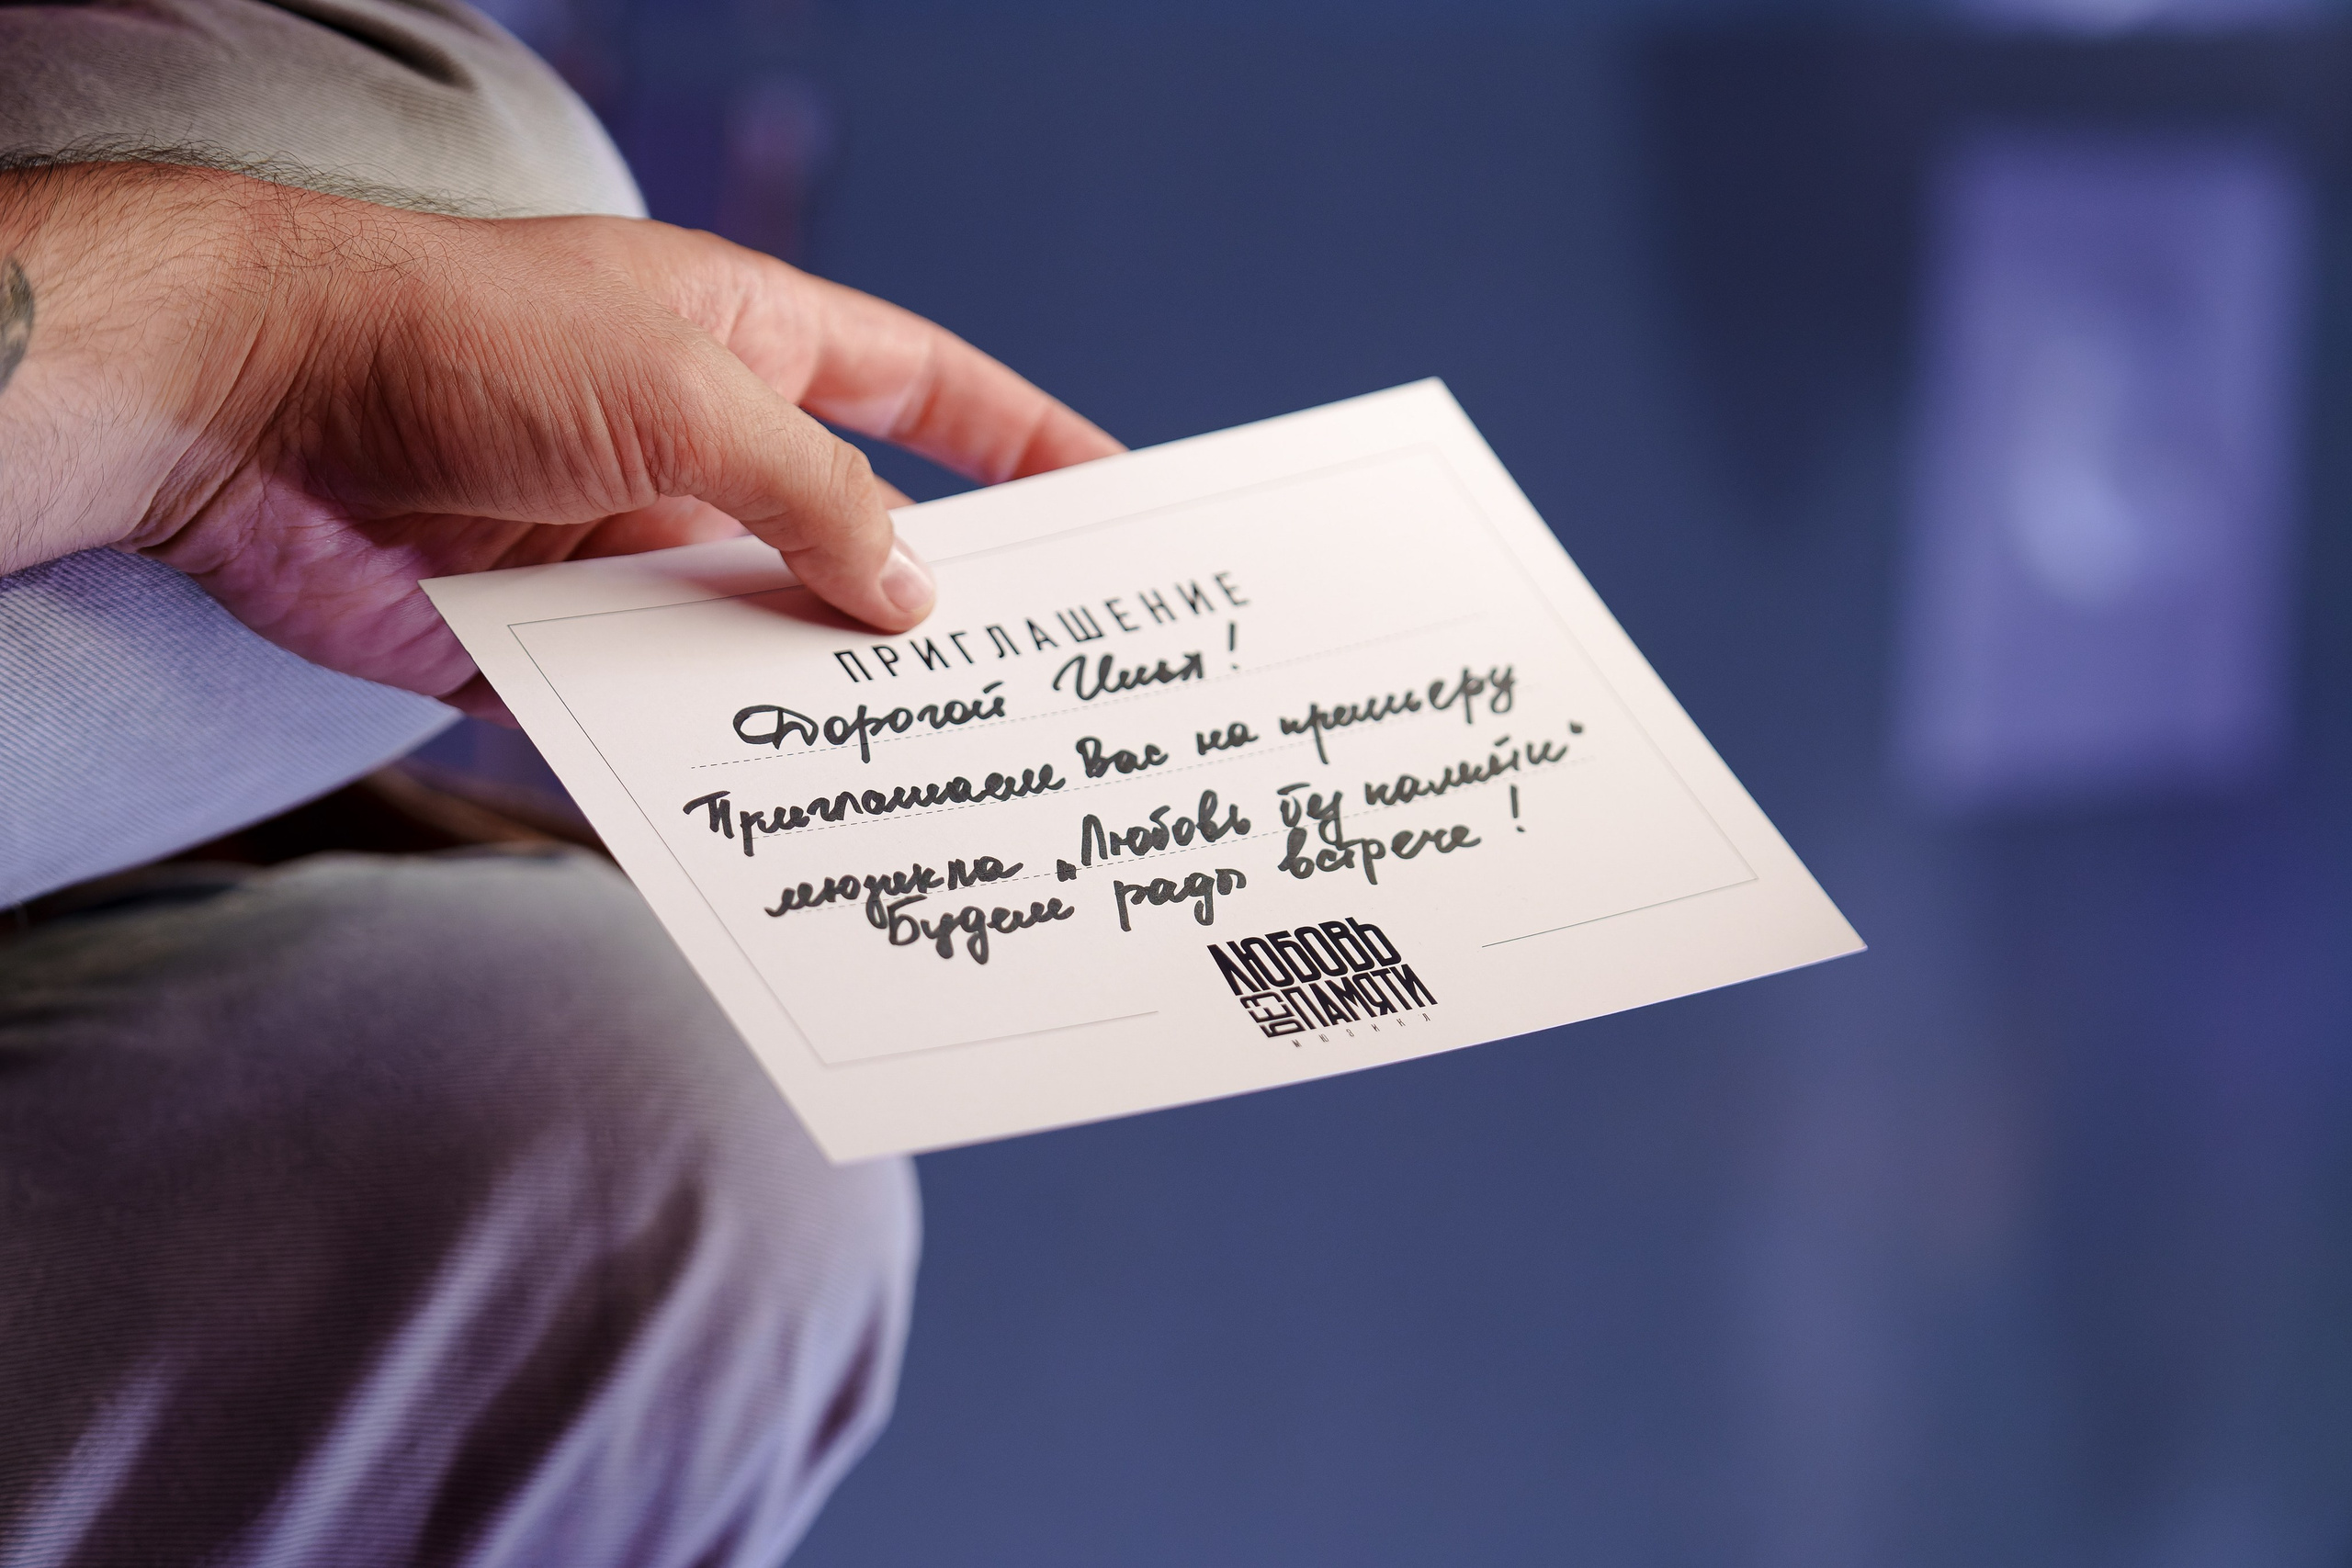 ПРИГЛАШЕНИЕ
Дорогой Илья!
Приглашаем Вас на премьеру
мюзикла „Любовь без памяти"
Будем рады встрече!
ЛЮБОВЬ
БЕЗ ПАМЯТИ
МЮЗИКЛ